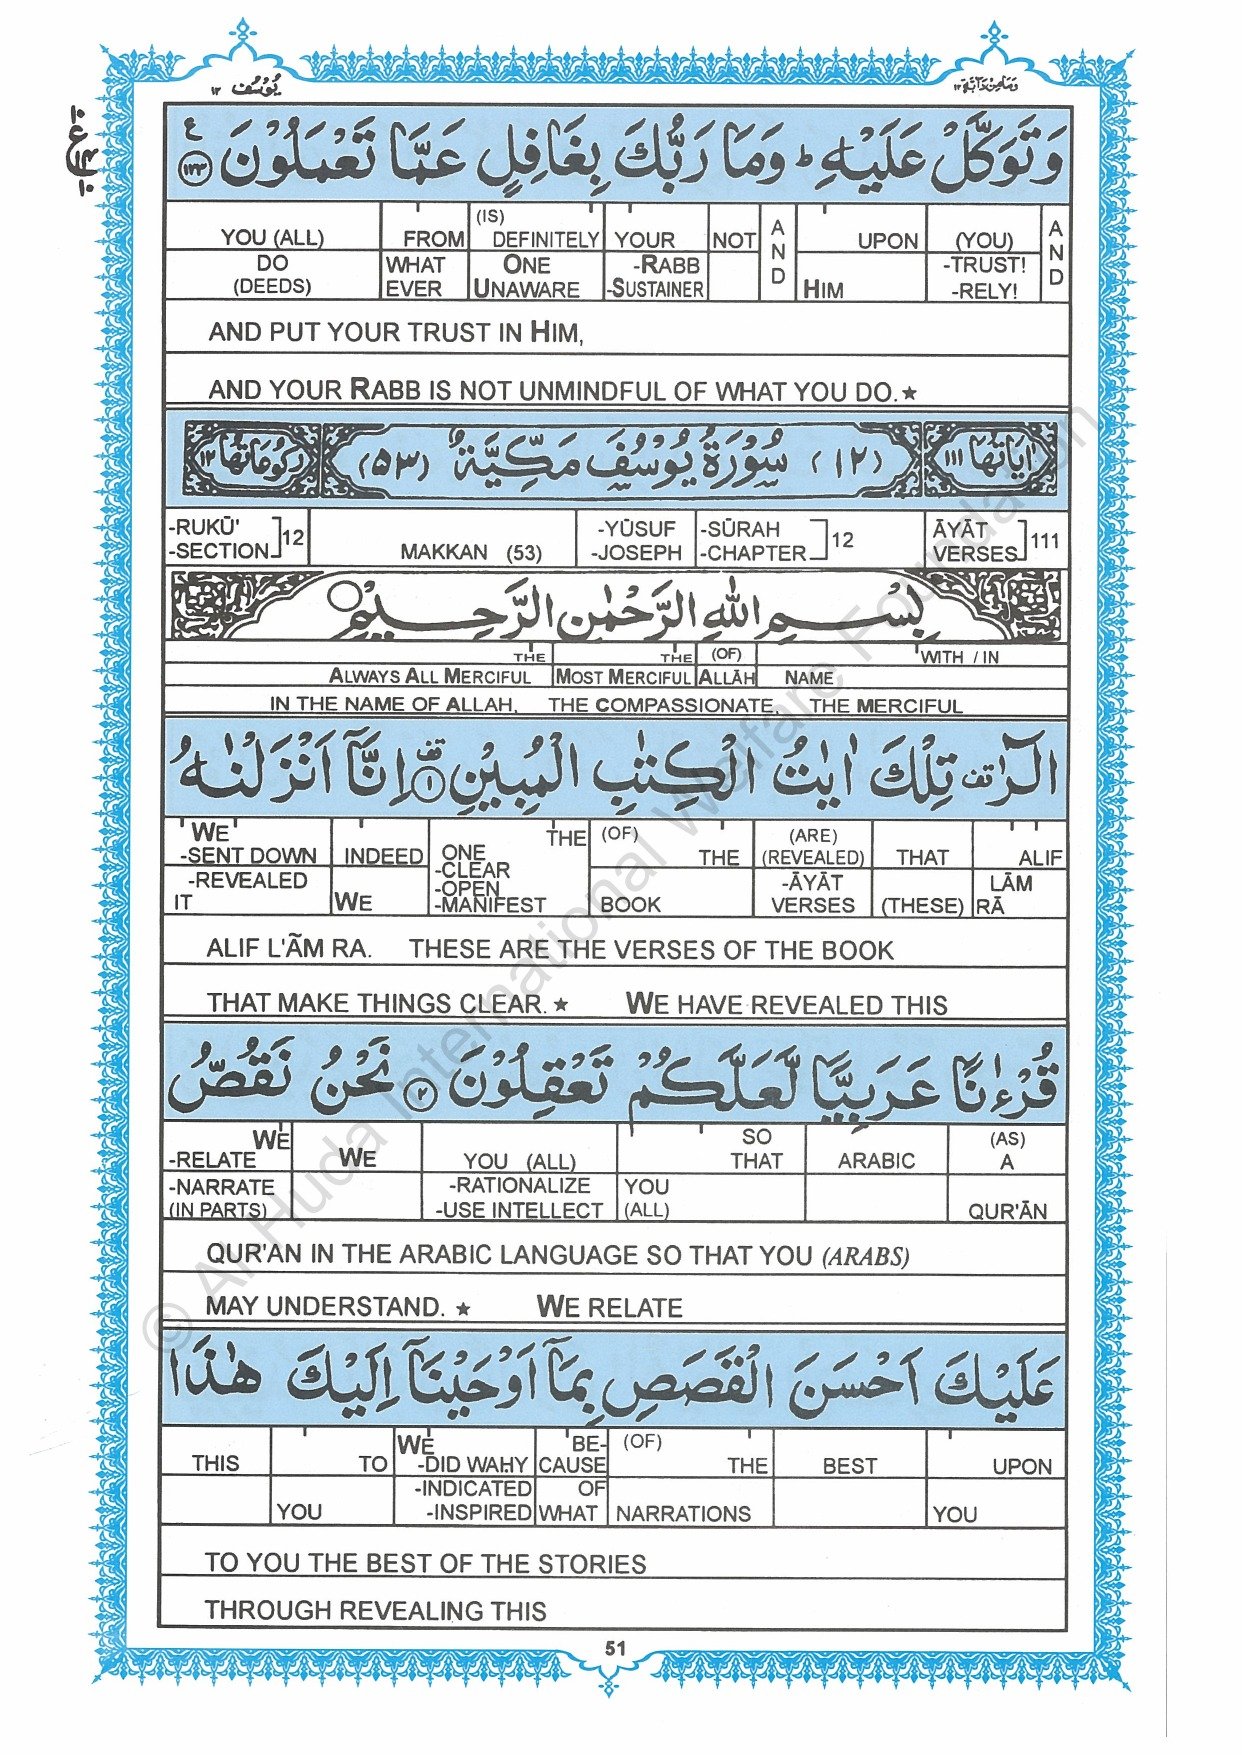 يُوْسُف ١٢
وَمَا مِنْ دَآبَّةٍ ١٢
وَتَوَكَّلْ عَلَيْهِ ؕ وَمَا رَبُّكَ بِغَافِلٍ عَمَّا تَعْمَلُوْنَ ﴿١٢٣﴾ ع
YOU (ALL) FROM (IS) DEFINITELY YOUR NOT AND UPON (YOU) AND
DO (DEEDS) WHAT EVER ONE UNAWARE -RABB -SUSTAINER HIM -TRUST! -RELY!
AND PUT YOUR TRUST IN HIM,
AND YOUR RABB IS NOT UNMINDFUL OF WHAT YOU DO.★
اٰيَاتُهَا ١١١ (١٢) سُوْرَةُ يُوْسُفَ مَكِّيَّةٌ (٥٣) رُكُوْعَاتُهَا ١٢
-RUKŪ' -SECTION 12 MAKKAN (53) -YŪSUF -JOSEPH -SŪRAH -CHAPTER 12 ĀYĀT VERSES 111
بِسْمِ اللّٰهِ الرَّحْمٰنِ الرَّحِيْمِ
THE THE (OF) WITH / IN
ALWAYS ALL MERCIFUL MOST MERCIFUL ALLĀH NAME
IN THE NAME OF ALLAH, THE COMPASSIONATE, THE MERCIFUL
الٓرٰ ۟ تِلْكَ اٰيٰتُ الْكِتٰبِ الْمُبِيْنِ ﴿١﴾ اِنَّآ اَنْزَلْنٰهُ
WE -SENT DOWN INDEED THE ONE -CLEAR -OPEN -MANIFEST (OF) THE (ARE) (REVEALED) THAT ALIF
-REVEALED IT WE BOOK -ĀYĀT VERSES (THESE) LĀM RĀ
ALIF L'ÃM RA. THESE ARE THE VERSES OF THE BOOK
THAT MAKE THINGS CLEAR.★ WE HAVE REVEALED THIS
قُرْءٰنًا عَرَبِيًّا لَّعَلَّكُمْ تَعْقِلُوْنَ ﴿٢﴾ نَحْنُ نَقُصُّ
WE -RELATE WE YOU (ALL) SO THAT ARABIC (AS) A
-NARRATE (IN PARTS) -RATIONALIZE -USE INTELLECT YOU (ALL) QUR'ĀN
QUR'AN IN THE ARABIC LANGUAGE SO THAT YOU (ARABS)
MAY UNDERSTAND. ★ WE RELATE
عَلَيْكَ اَحْسَنَ الْقَصَصِ بِمَآ اَوْحَيْنَآ اِلَيْكَ هٰذَا
THIS TO WE -DID WAHY BE- CAUSE (OF) THE BEST UPON
YOU -INDICATED -INSPIRED OF WHAT NARRATIONS YOU
TO YOU THE BEST OF THE STORIES
THROUGH REVEALING THIS
51
© Al Huda International Welfare Foundation